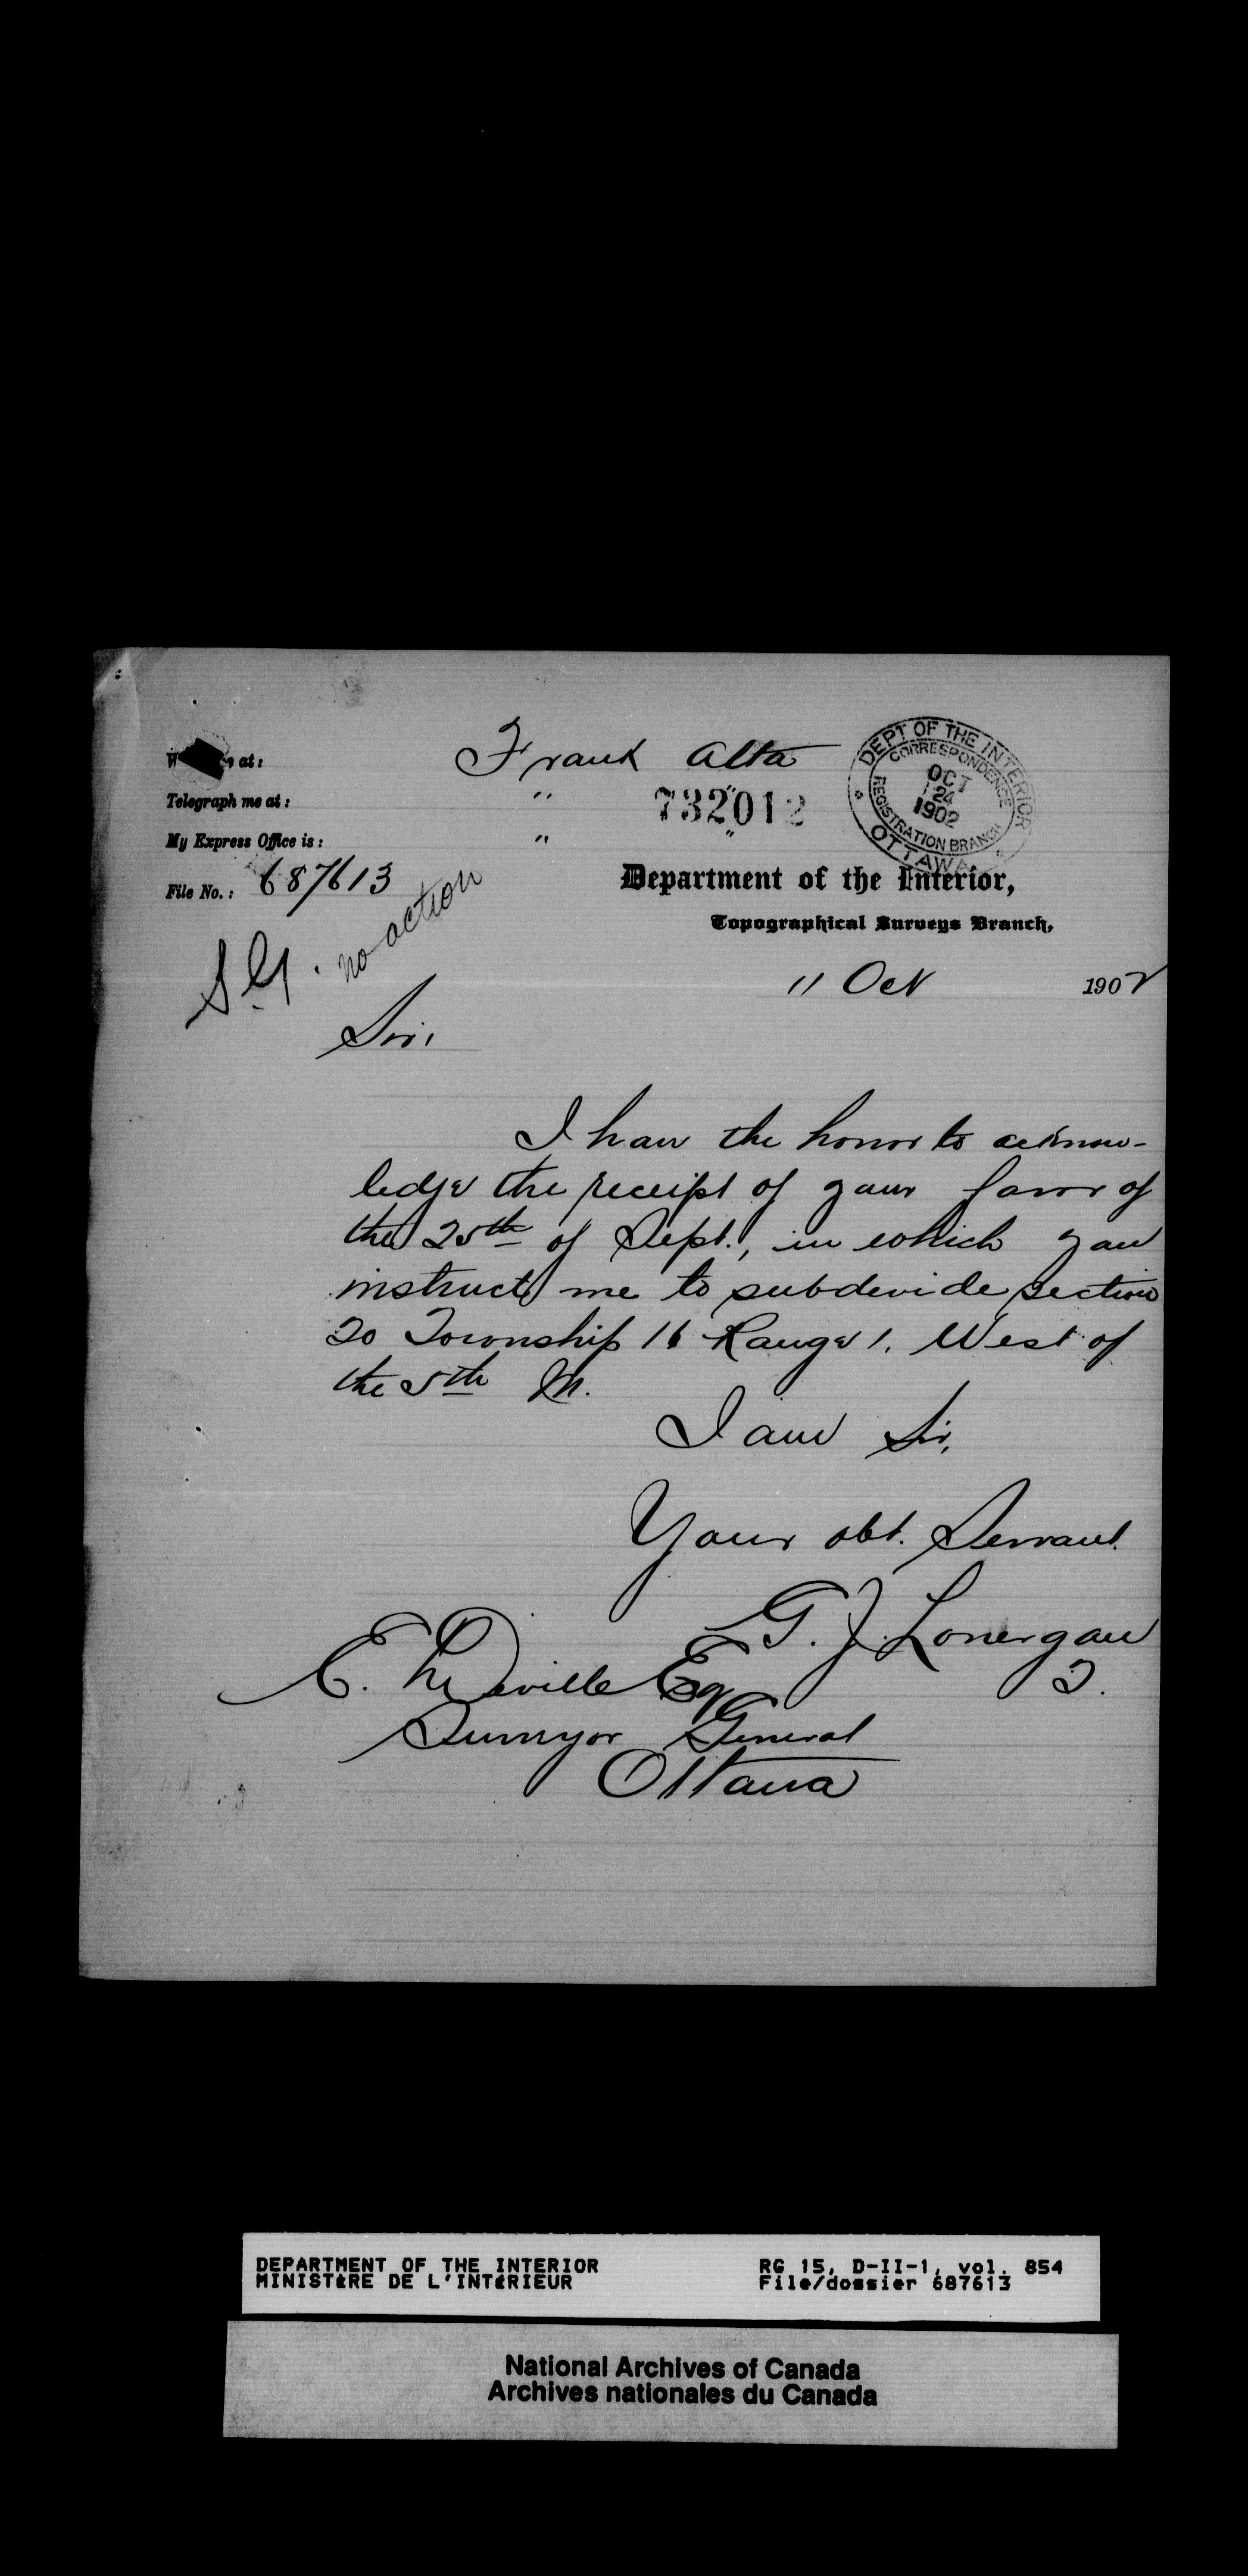 at: Frank Alta
Telegraph me at: " "
My Express Office is: " "
732012
DEPT OF THE INTERIOR
CORRESPONDENCE
OCT
24
1902
REGISTRATION BRANCH
OTTAWA
File No.: 687613
Department of the Interior,
Topographical Surveys Branch,
S.G. no action
11 Oct 1902
Sir,
I have the honor to acknow-
ledge the receipt of your favor of
the 25th of Sept., in which you
instruct me to subdivide section
20 Township 16 Range 1. West of
the 5th M.
I am Sir,
Your obt. Servant.
G. J. Lonergan
E. Deville Esq
Surveyor General
Ottawa
DEPARTMENT OF THE INTERIOR RG 15, D-II-1, vol. 854
MINISTÈRE DE L'INTÉRIEUR File/dossier 687613
National Archives of Canada
Archives nationales du Canada